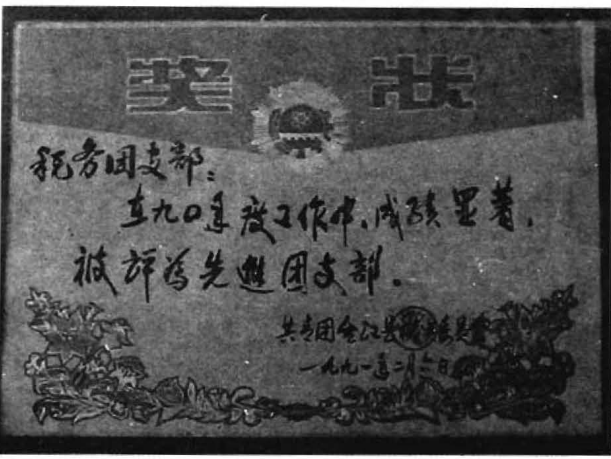 奖状
税务团支部：
在九〇年度工作中，成绩显著，
被评为先进团支部。
共青团合江县委员会
一九九一年二月六日